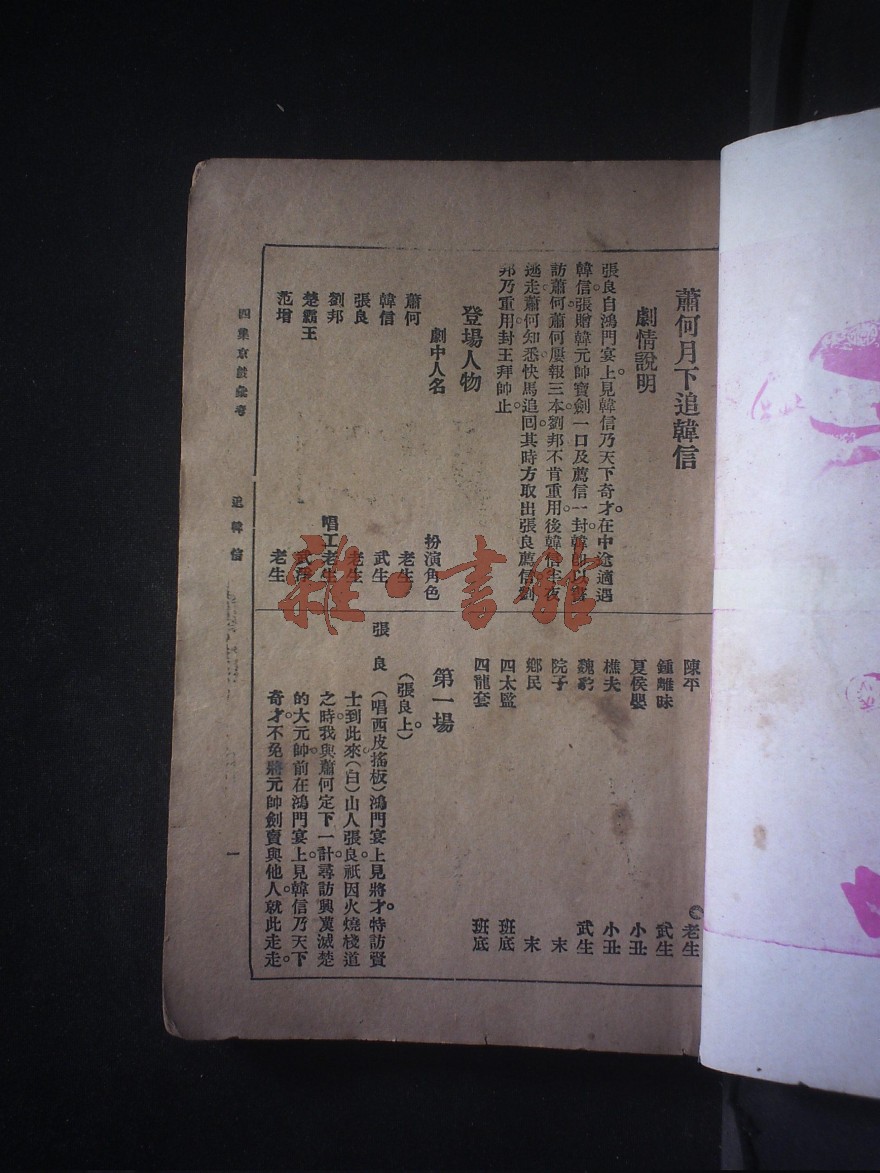 蕭何月下追韓信
劇情說明
張良自鴻門宴上見韓信乃天下奇才。在中途適遇
韓信。張贈韓元帥寶劍一口及薦信一封。韓
訪蕭何蕭何屢報三本劉邦不肯重用。後韓信半夜
逃走蕭何知悉快馬追回其時方取出張良薦信劉
邦乃重用封王拜帥止
登場人物
劇中人名 扮演角色
蕭何 老生
韓信 武生
張良 老生
劉邦 唱工老生
楚霸王 武淨
范增 老生
陳平 老生
鍾離昧 武生
夏侯嬰 小丑
樵夫 小丑
魏豹 武生
院子 末
鄉民 末
四太監 班底
四龍套 班底
第一場
(張良上)
張良 (唱西皮搖板)鴻門宴上見將才。特訪賢
士到此來。(白)山人張良。祇因火燒棧道
之時。我與蕭何定下一計。尋訪興漢滅楚
的大元帥。前在鴻門宴上。見韓信乃天下
奇才。不免將元帥劍賣與他人。就此走走。
四集京戲彙考
追韓信
一
雜·書館